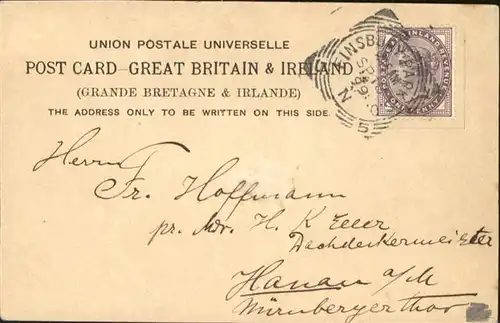 UNION POSTALE UNIVERSELLE
POST CARD–GREAT BRITAIN & IRELAND
(GRANDE BRETAGNE & IRLANDE)
THE ADDRESS ONLY TO BE WRITTEN ON THIS SIDE
Herrn
Fr. Hoffmann
pr. Adr. H. K Eller
Dachdeckermeister
Hanau a/M
Nürnbergerthor
INLAND
5